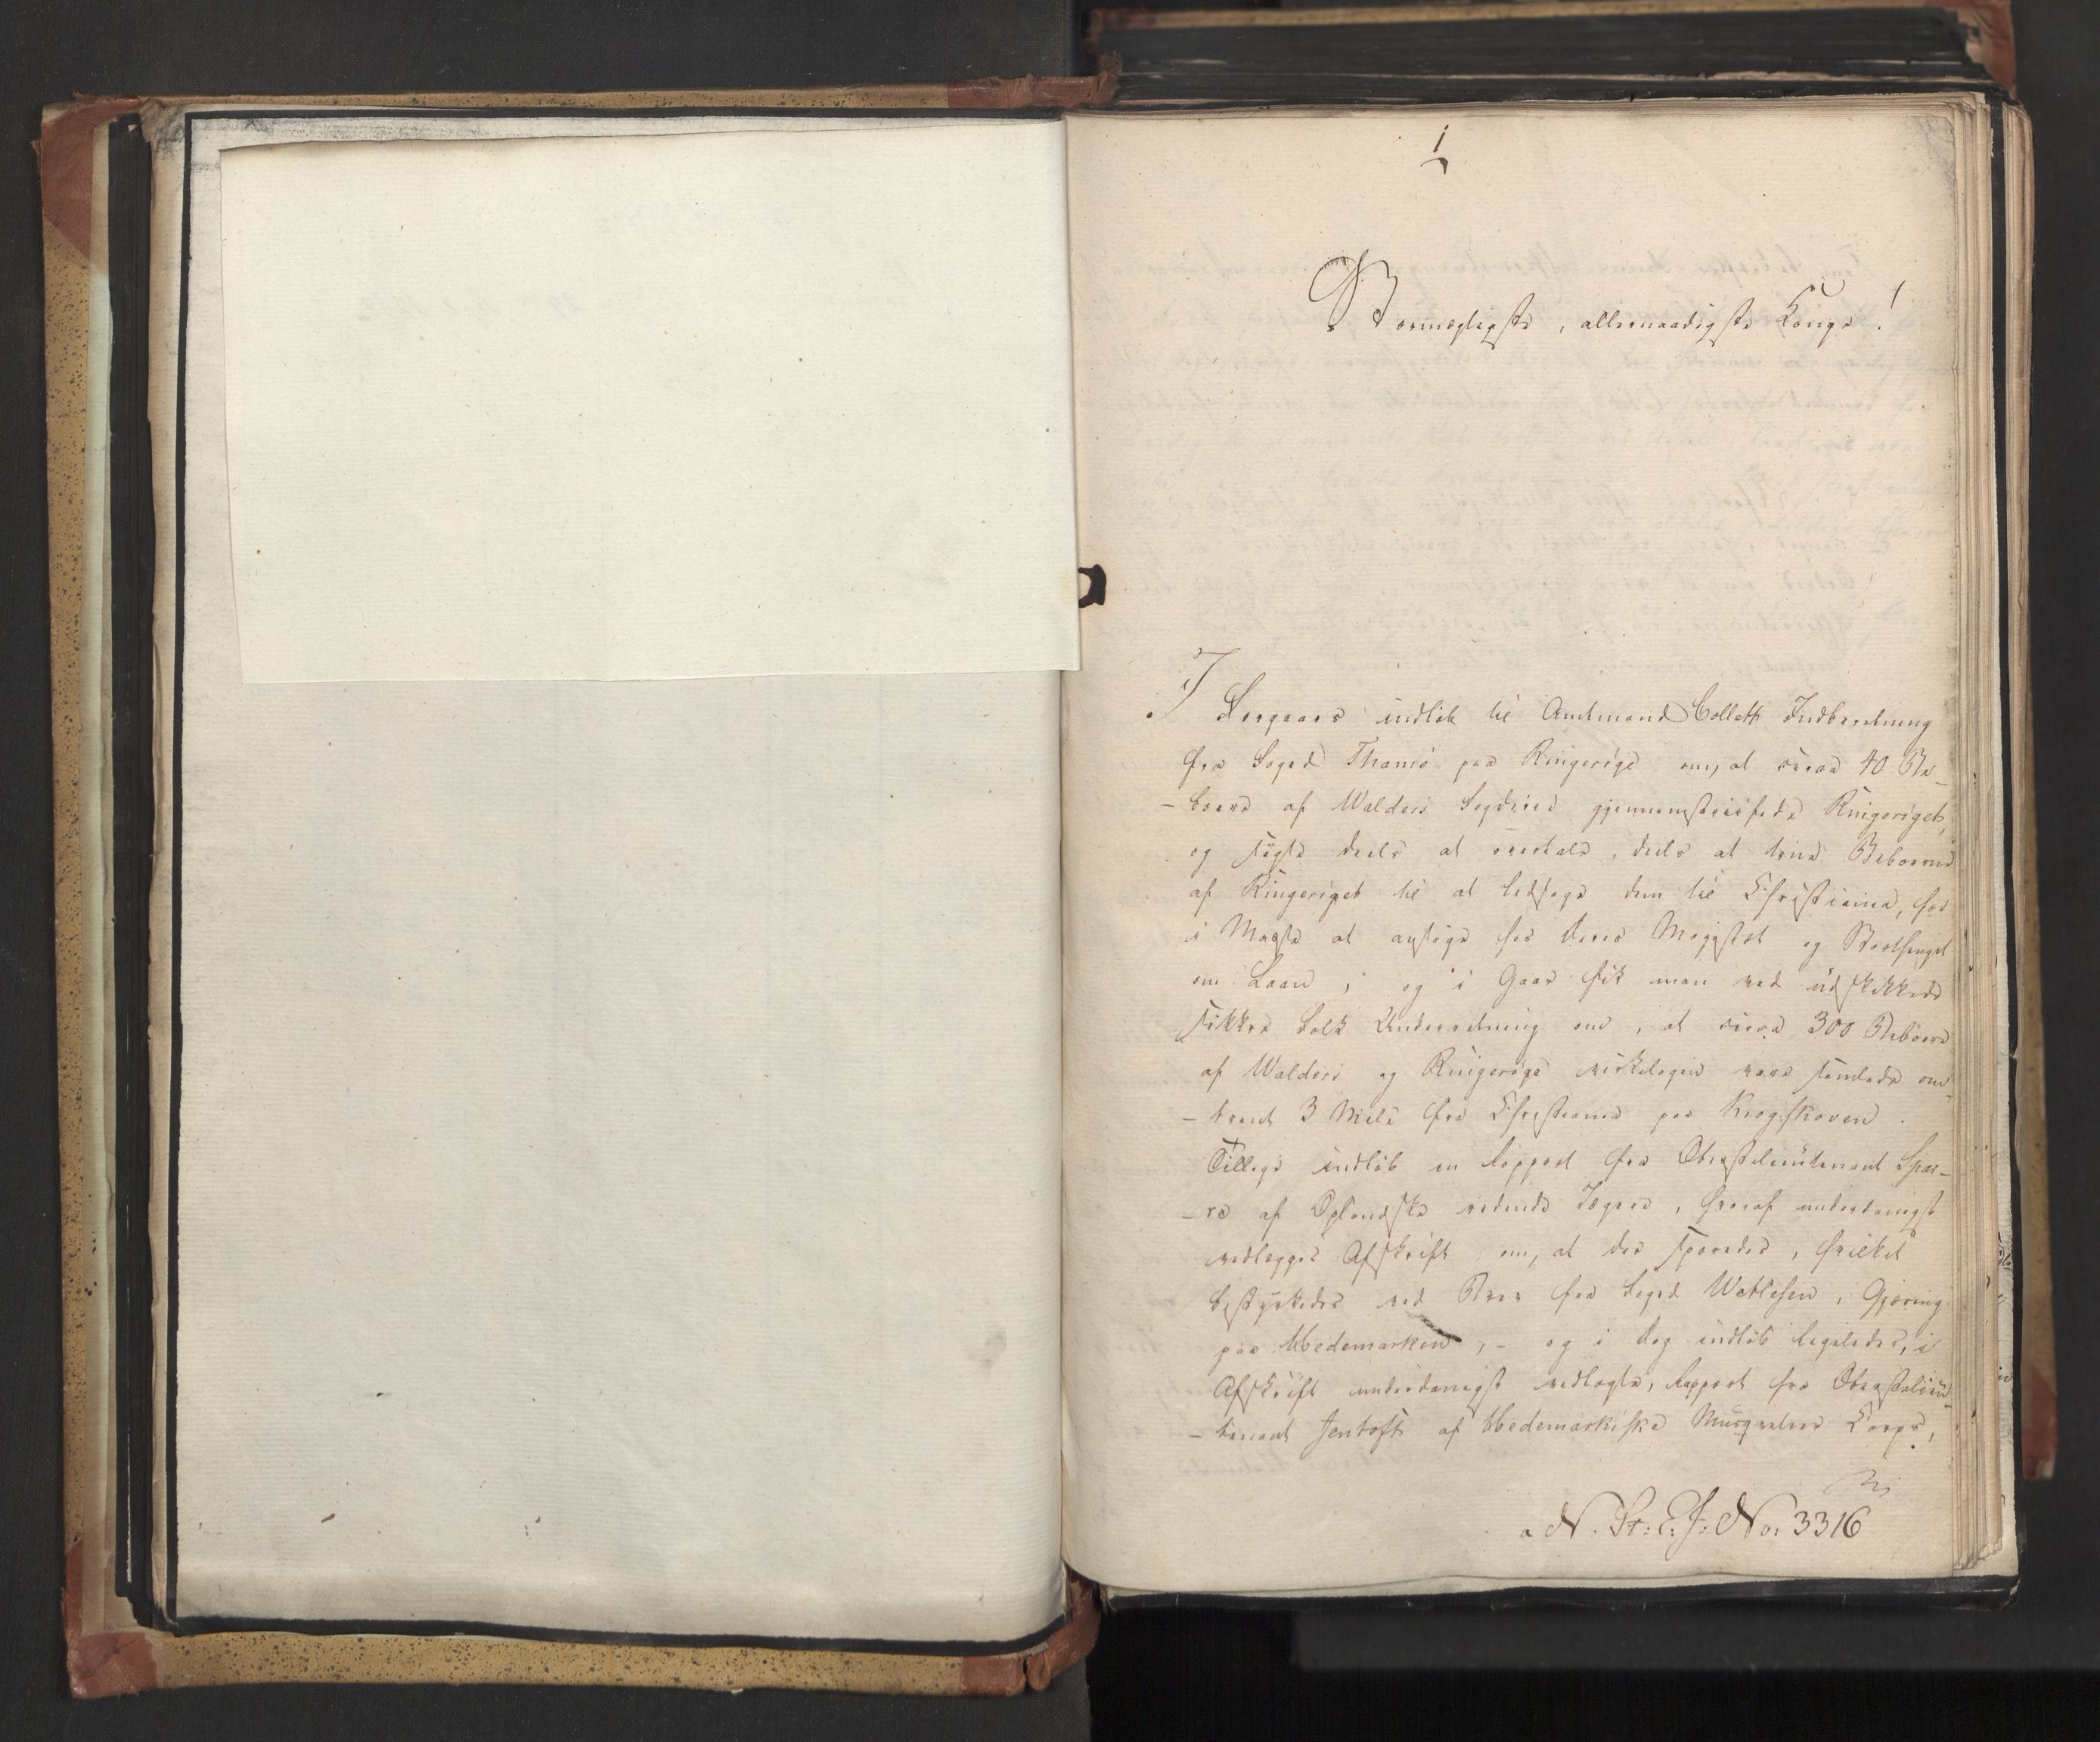 1
Stormægtigste, allernaadigste Konge!
I Forgaars indløb til Amtmand Collett Indberetning
fra Foged Thams paa Ringerige om, at circa 40 Be-
-boere af Walders Fogderie gjennemstreifede Ringeriget,
og søgte deels at overtale, deels at true Beboerne
af Ringeriget til at ledsage dem til Christiania, for
i Masse at ansøge hos Deres Majestæt og Storthinget
om Laan; og i Gaar fik man ved udskikkede
sikkre Folk Underretning om, at circa 300 Beboere
af Walders og Ringerige virkeligen vare samlede om-
-trent 3 Mile fra Christiania paa Krogskoven.
Tillige indløb en Rapport fra Oberstlieutenant Spar-
-re af Oplandske ridende Jægere, hvoraf underdanigst
vedlægges Afskrift om, at der sporedes, hvilket
bestyrkedes ved Brev fra Foged Wetlesen, Gjæring
paa Hedemarken, - og i Dag indløb ligeledes, i
Afskrift underdanigst vedlagte, Rapport fra Oberstlieu-
-tenant Jentoft af Hedemarkiske Musqueteer Corps,
N. St: E. J: No. 3316